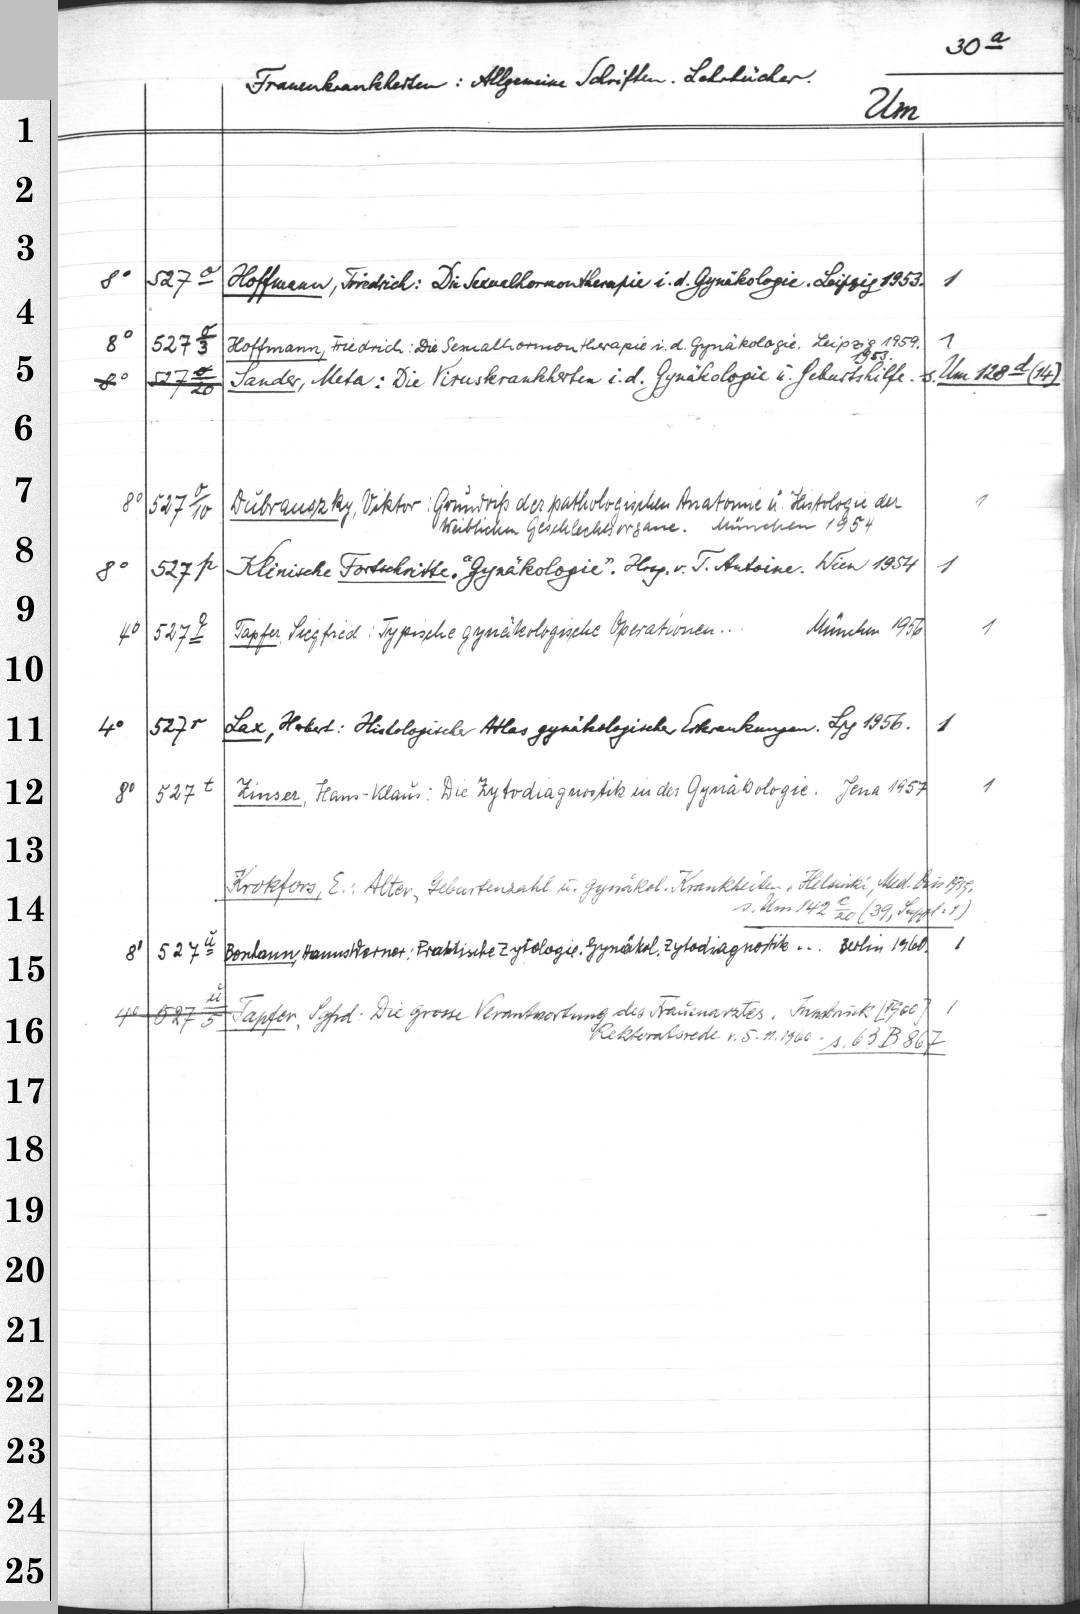 30 a
Frauenkrankheiten : Allgemeine Schriften. Lehrbücher.
Um
1
2
3
8° 527 o Hoffmann, Friedrich: Die Sexualhormontherapie i. d. Gynäkologie. Leipzig 1953. 1
4
8° 527 o/3 Hoffmann, Friedrich: Die Sexualhormontherapie i. d. Gynäkologie. Leipzig 1959. 1
1953.
5 8° 527 o/20 Sander, Meta: Die Viruskrankheiten i. d. Gynäkologie u. Geburtshilfe. s. Um 128 d (14)
6
7 8° 527 o/10 Dubrauszky, Viktor: Grundriß der pathologischen Anatomie u. Histologie der 1
weiblichen Geschlechtsorgane. München 1954
8 8° 527 p Klinische Fortschritte. "Gynäkologie". Hrsg. v. T. Antoine. Wien 1954 1
9
4° 527 q Tapfer, Siegfried: Typische gynäkologische Operationen... München 1956 1
10
11 4° 527 r Lax, Hobert: Histologischer Atlas gynäkologischer Erkrankungen. Lpg 1956. 1
12 8° 527 t Zinser, Hans-Klaus: Die Zytodiagnostik in der Gynäkologie. Jena 1957 1
13
Krokfors, E.: Alter, Geburtenzahl u. gynäkol. Krankheiten. Helsinki, Med. Diss
14 s. Um 142 c/20 (39, Suppl. 1)
15 8° 527 u Bonhann, Hanns Werner: Praktische Zytologie. Gynäkol. Zytodiagnostik... Berlin 1960. 1
16 4° 527 u/5 Tapfer, Sgfrd: Die grosse Verantwortung des Frauenarztes. Innsbruck [1960] 1
Rektoratsrede v. 5. 11. 1960. s. 63 B 867
17
18
19
20
21
22
23
24
25